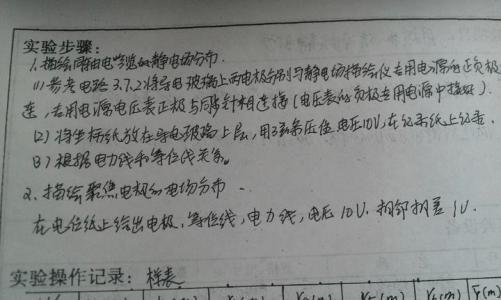 实验步骤:
1.描绘同轴电缆的静电场分布.
(1)参考电路3.7.2将导电玻璃上两电极分别与静电场描绘仪专用电源的正负极
连,专用电源电压表正极与同步探针相连接(电压表的负极专用电源中接好).
(2)将坐标纸放在导电玻璃上层,用 电压10V,在记录纸上记录.
(3)根据电力线和等位线关系。
2.描绘聚焦电极的电场分布
在电位纸上绘出电极,等位线,电力线,电压10V.相邻相差1V.
实验操作记录: 样表